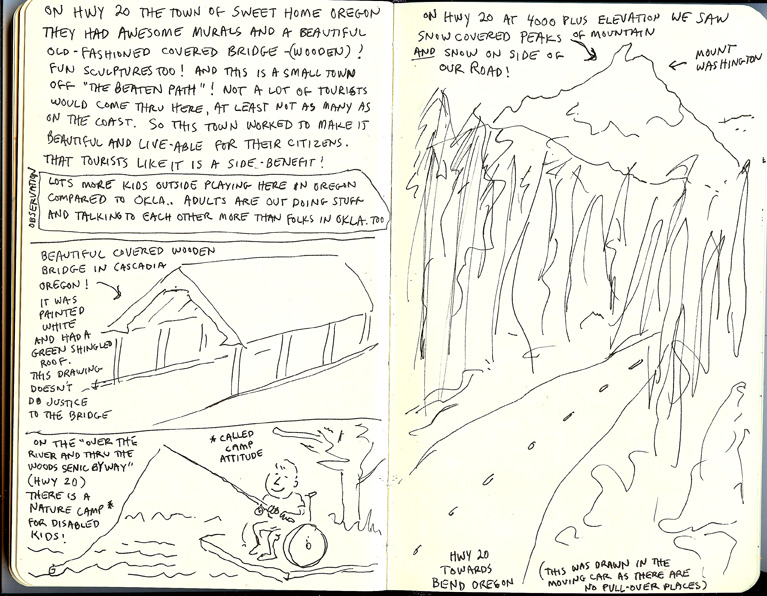 ON HWY 20 THE TOWN OF SWEET HOME OREGON
THEY HAD AWESOME MURALS AND A BEAUTIFUL
OLD-FASHIONED COVERED BRIDGE-(WOODEN)!
FUN SCULPTURES TOO! AND THIS IS A SMALL TOWN
OFF "THE BEATEN PATH"! NOT A LOT OF TOURISTS
WOULD COME THRU HERE, AT LEAST NOT AS MANY AS
ON THE COAST. SO THIS TOWN WORKED TO MAKE IT
BEAUTIFUL AND LIVE-ABLE FOR THEIR CITIZENS.
THAT TOURISTS LIKE IT IS A SIDE-BENEFIT!
OBSERVATION
LOTS MORE KIDS OUTSIDE PLAYING HERE IN OREGON
COMPARED TO OKLA.. ADULTS ARE OUT DOING STUFF
AND TALKING TO EACH OTHER MORE THAN FOLKS IN OKLA. TOO
BEAUTIFUL COVERED WOODEN
BRIDGE IN CASCADIA
OREGON!
IT WAS
PAINTED
WHITE
AND HAD A
GREEN SHINGLED
ROOF.
THIS DRAWING
DOESN'T
DO JUSTICE
TO THE BRIDGE
ON THE "OVER THE
RIVER AND THRU THE
WOODS SENIC BYWAY"
(HWY 20)
THERE IS A
NATURE CAMP*
FOR DISABLED
KIDS!
*CALLED
CAMP
ATTITUDE
ON HWY 20 AT 4000 PLUS ELEVATION WE SAW
SNOW COVERED PEAKS OF MOUNTAIN
AND SNOW ON SIDE OF
OUR ROAD!
MOUNT
WASHINGTON
HWY 20
TOWARDS
BEND OREGON
(THIS WAS DRAWN IN THE
MOVING CAR AS THERE ARE
NO PULL-OVER PLACES)